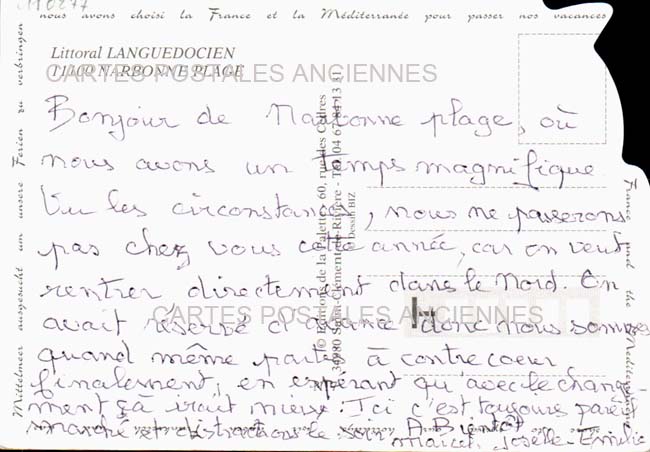 110277
nous avons choisi la France et la Méditerranée pour passer nos vacances
Littoral LANGUEDOCIEN
11100 NARBONNE PLAGE
CARTES POSTALES ANCIENNES
Bonjour de Narbonne plage, où
nous avons un temps magnifique.
Vu les circonstances, nous ne passerons
pas chez vous cette année, car on veut
rentrer directement dans le Nord. On
avait réservé d'avance donc nous sommes
CARTES POSTALES ANCIENNES
quand même partis à contre coeur
finalement, en espérant qu'avec le change-
ment çà irait mieux. Ici c'est toujours pareil
marché et distractions le soir. A Bientôt
Marcel, Joselle - Emilie
© Editions de la Palette - 60, rue des Cultres
34980 Saint-Clément-de-Rivière - Tél. 04 67 84 13 31
Dessin BIZ
France and the Mediterranean
Mittelmeer ausgesucht um unsere Ferien zu verbringen